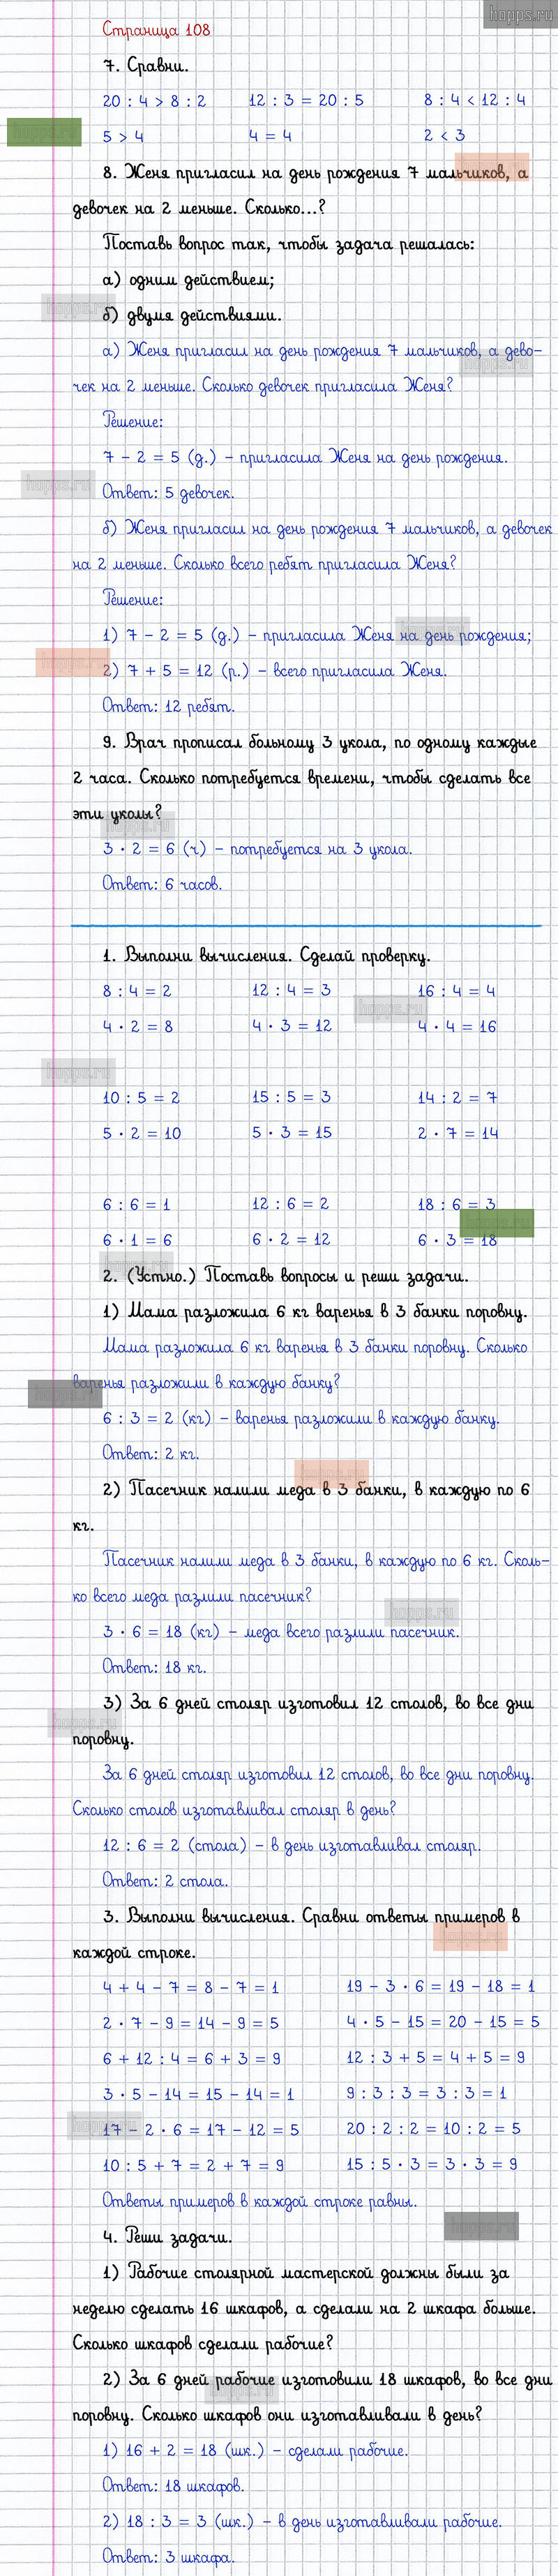 hopps.ru
Страница 108
7. Сравни.
20 : 4 > 8 : 2 12 : 3 = 20 : 5 8 : 4 < 12 : 4
5 > 4 4 = 4 2 < 3
8. Женя пригласил на день рождения 7 мальчиков, а
девочек на 2 меньше. Сколько...?
Поставь вопрос так, чтобы задача решалась:
а) одним действием;
б) двумя действиями.
а) Женя пригласил на день рождения 7 мальчиков, а дево-
чек на 2 меньше. Сколько девочек пригласила Женя?
Решение:
7 – 2 = 5 (д.) – пригласила Женя на день рождения.
Ответ: 5 девочек.
б) Женя пригласил на день рождения 7 мальчиков, а девочек
на 2 меньше. Сколько всего ребят пригласила Женя?
Решение:
1) 7 – 2 = 5 (д.) – пригласила Женя на день рождения;
2) 7 + 5 = 12 (р.) – всего пригласила Женя.
Ответ: 12 ребят.
9. Врач прописал больному 3 укола, по одному каждые
2 часа. Сколько потребуется времени, чтобы сделать все
эти уколы?
3 · 2 = 6 (ч) – потребуется на 3 укола.
Ответ: 6 часов.
1. Выполни вычисления. Сделай проверку.
8 : 4 = 2 12 : 4 = 3 16 : 4 = 4
4 · 2 = 8 4 · 3 = 12 4 · 4 = 16
10 : 5 = 2 15 : 5 = 3 14 : 2 = 7
5 · 2 = 10 5 · 3 = 15 2 · 7 = 14
6 : 6 = 1 12 : 6 = 2 18 : 6 = 3
6 · 1 = 6 6 · 2 = 12 6 · 3 = 18
2. (Устно.) Поставь вопросы и реши задачи.
1) Мама разложила 6 кг варенья в 3 банки поровну.
Мама разложила 6 кг варенья в 3 банки поровну. Сколько
варенья разложили в каждую банку?
6 : 3 = 2 (кг) – варенья разложили в каждую банку.
Ответ: 2 кг.
2) Пасечник налили меда в 3 банки, в каждую по 6
кг.
Пасечник налили меда в 3 банки, в каждую по 6 кг. Сколь-
ко всего меда разлили пасечник?
3 · 6 = 18 (кг) – меда всего разлили пасечник.
Ответ: 18 кг.
3) За 6 дней столяр изготовил 12 столов, во все дни
поровну.
За 6 дней столяр изготовил 12 столов, во все дни поровну.
Сколько столов изготавливал столяр в день?
12 : 6 = 2 (стола) – в день изготавливал столяр.
Ответ: 2 стола.
3. Выполни вычисления. Сравни ответы примеров в
каждой строке.
4 + 4 – 7 = 8 – 7 = 1 19 – 3 · 6 = 19 – 18 = 1
2 · 7 – 9 = 14 – 9 = 5 4 · 5 – 15 = 20 – 15 = 5
6 + 12 : 4 = 6 + 3 = 9 12 : 3 + 5 = 4 + 5 = 9
3 · 5 – 14 = 15 – 14 = 1 9 : 3 : 3 = 3 : 3 = 1
17 – 2 · 6 = 17 – 12 = 5 20 : 2 : 2 = 10 : 2 = 5
10 : 5 + 7 = 2 + 7 = 9 15 : 5 · 3 = 3 · 3 = 9
Ответы примеров в каждой строке равны.
4. Реши задачи.
1) Рабочие столярной мастерской должны были за
неделю сделать 16 шкафов, а сделали на 2 шкафа больше.
Сколько шкафов сделали рабочие?
2) За 6 дней рабочие изготовили 18 шкафов, во все дни
поровну. Сколько шкафов они изготавливали в день?
1) 16 + 2 = 18 (шк.) – сделали рабочие.
Ответ: 18 шкафов.
2) 18 : 3 = 3 (шк.) – в день изготавливали рабочие.
Ответ: 3 шкафа.